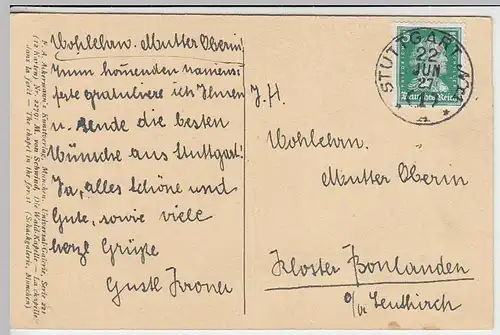 Wohlehrw. Mutter Oberin!
Zum kommenden Namens-
feste gratuliere ich Ihnen
u. sende die besten
Wünsche aus Stuttgart!
Ja, alles Schöne und
Gute, sowie viele
herzl. Grüße
Gustl
F. A. Ackermann's Kunstverlag, München. Universal-Galerie, Serie 221
(12 Karten) Nr. 2270: M. von Schwind, Die Wald-Kapelle — La chapelle
dans la forêt — The chapel in the forest (Schackgalerie, München)
STUTTGART
22
JUN
27
Deutsches Reich
I. H.
Wohlehrw.
Mutter Oberin
Kloster Bonlanden
Leutkirch